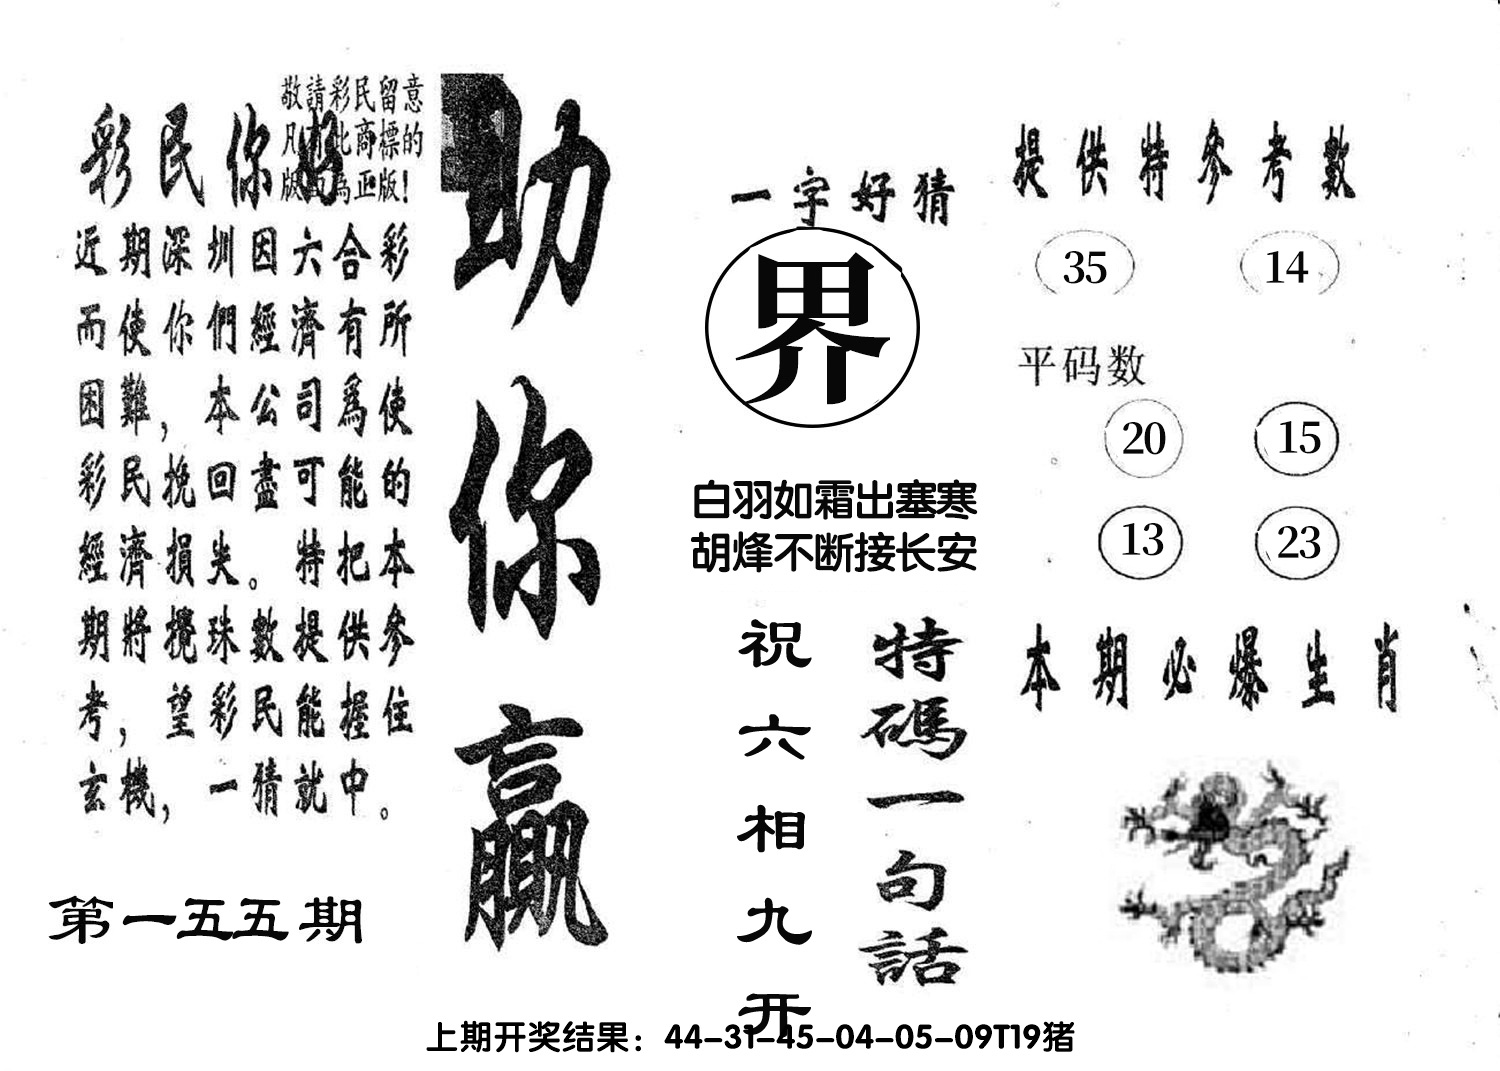 敬請彩民留意
凡有此商標的
版面為正版!
彩民你好
近期深圳因六合彩
而使你們經濟有所
困難，本公司爲使
彩民挽回盡可能的
經濟損失。特把本
期將攪珠數提供參
考，望彩民能握住
玄機，一猜就中。
第一五五期
助你贏
一字好猜
界
白羽如霜出塞寒
胡烽不断接长安
特碼一句話
祝六相九开
提供特參考數
35 14
平码数
20 15
13 23
本期必爆生肖
上期开奖结果：44-31-45-04-05-09T19猪